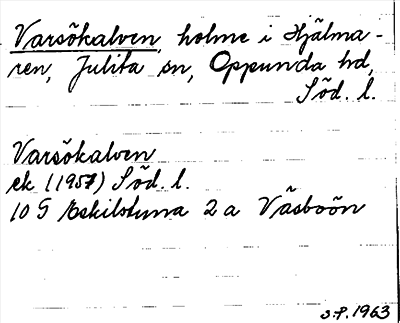 Varsökalven, holme i Hjälma-
ren, Julita sn, Oppunda hd,
Söd. l.
Varsökalven
ek (1957) Söd. l.
10 G Eskilstuna 2 a Väsboön
S.P. 1963